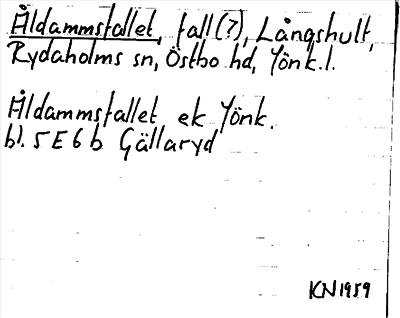 Åldammsfallet, fall (?), Långshult,
Rydaholms sn, Östbo hd, Jönk. l.
Åldammsfallet ek Jönk.
bl. 5E6b Gällaryd
KN 1959